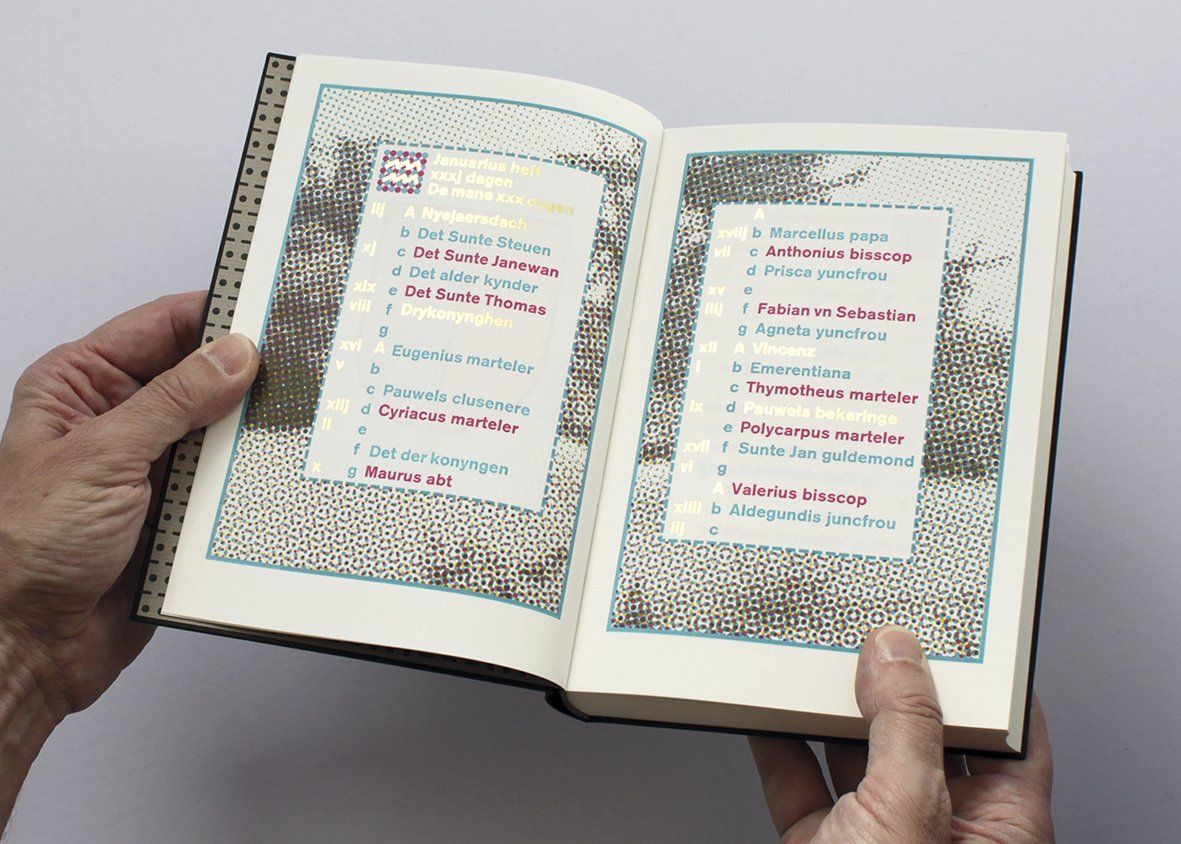 Januarius heft
xxxj dagen
De mane xxx dagen
iij A Nyejaersdach
b Det Sunte Steuen
xj c Det Sunte Janewan
d Det alder kynder
xix e Det Sunte Thomas
viii f Drykonynghen
g
xvi A Eugenius marteler
v b
c Pauwels clusenere
xiij d Cyriacus marteler
ii e
f Det der konyngen
x g Maurus abt
A
xviij b Marcellus papa
vii c Anthonius bisscop
d Prisca yuncfrou
xv e
iiij f Fabian vn Sebastian
g Agneta yuncfrou
xii A Vincenz
i b Emerentiana
c Thymotheus marteler
ix d Pauwels bekeringe
e Polycarpus marteler
xvii f Sunte Jan guldemond
vi g
A Valerius bisscop
xiiii b Aldegundis juncfrou
iij c